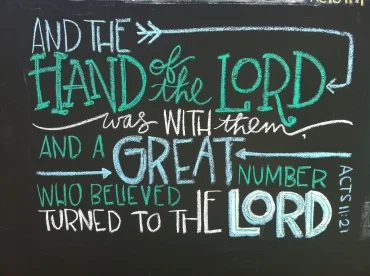 AND THE
HAND of the LORD
was WITH them,
AND A GREAT NUMBER
WHO BELIEVED
TURNED TO THE LORD
ACTS 11:21